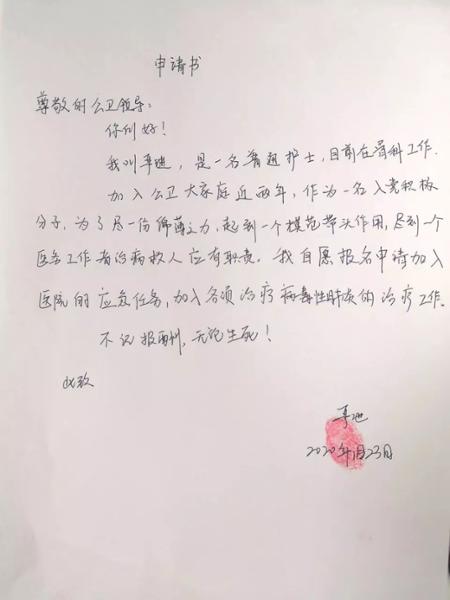 申请书
尊敬的公卫领导:
你们好!
我叫 , 是一名普通护士, 目前在骨科工作.
加入公卫大家庭近两年, 作为一名入党积极
分子, 为了尽一份绵薄之力, 起到一个模范带头作用, 尽到一个
医务工作者治病救人应有职责. 我自愿报名申请加入
医院的应急任务, 加入各项治疗病毒性肺炎的治疗工作.
不记报酬, 无论生死!
此致
2020年1月23日